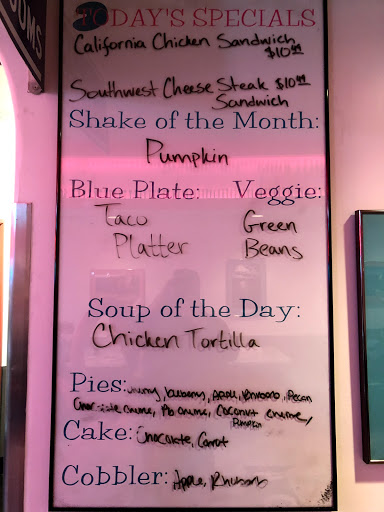 OOMS
TODAY'S SPECIALS
California Chicken Sandwich
$10.99
Southwest Cheese Steak $10.99
Sandwich
Shake of the Month:
Pumpkin
Blue Plate: Veggie:
Taco Green
Platter Beans
Soup of the Day:
Chicken Tortilla
Pies: Cherry, Blueberry, Apple, Pecan
Chocolate Creme, Pb Creme, Coconut Creme,
Pumpkin
Cake: Chocolate, Carrot
Cobbler: Apple, Rhubarb